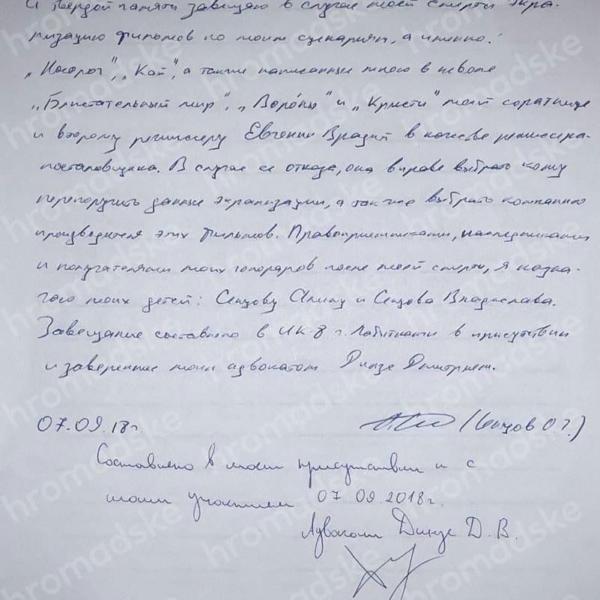 и твёрдой памяти завещаю в случае моей смерти экра-
низацию фильмов по моим сценариям, а именно:
„Носорог", „Кай", а также написанные мною в неволе
„Блистательный мир", „Воро́ны" и „Кристи" моей соратнице
и второму режиссеру Евгении Врадий в качестве режиссера-
постановщика. В случае её отказа, она вправе выбрать кому
перепоручить данные экранизации, а также выбрать компанию
производителя этих фильмов. Правоприемниками, наследниками
и получателями моих гонораров после моей смерти, я назна-
чаю моих детей: Сенцову Алину и Сенцова Владислава.
Завещание составлено в ИК-8 г. Лабытнанги в присутствии
и заверенное моим адвокатом Динзе Дмитрием.
07.09.18г. (Сенцов О Г.)
Составлено в моем присутствии и с
моим участием 07 09 2018г.
Адвокат Динзе Д. В.
hromadske